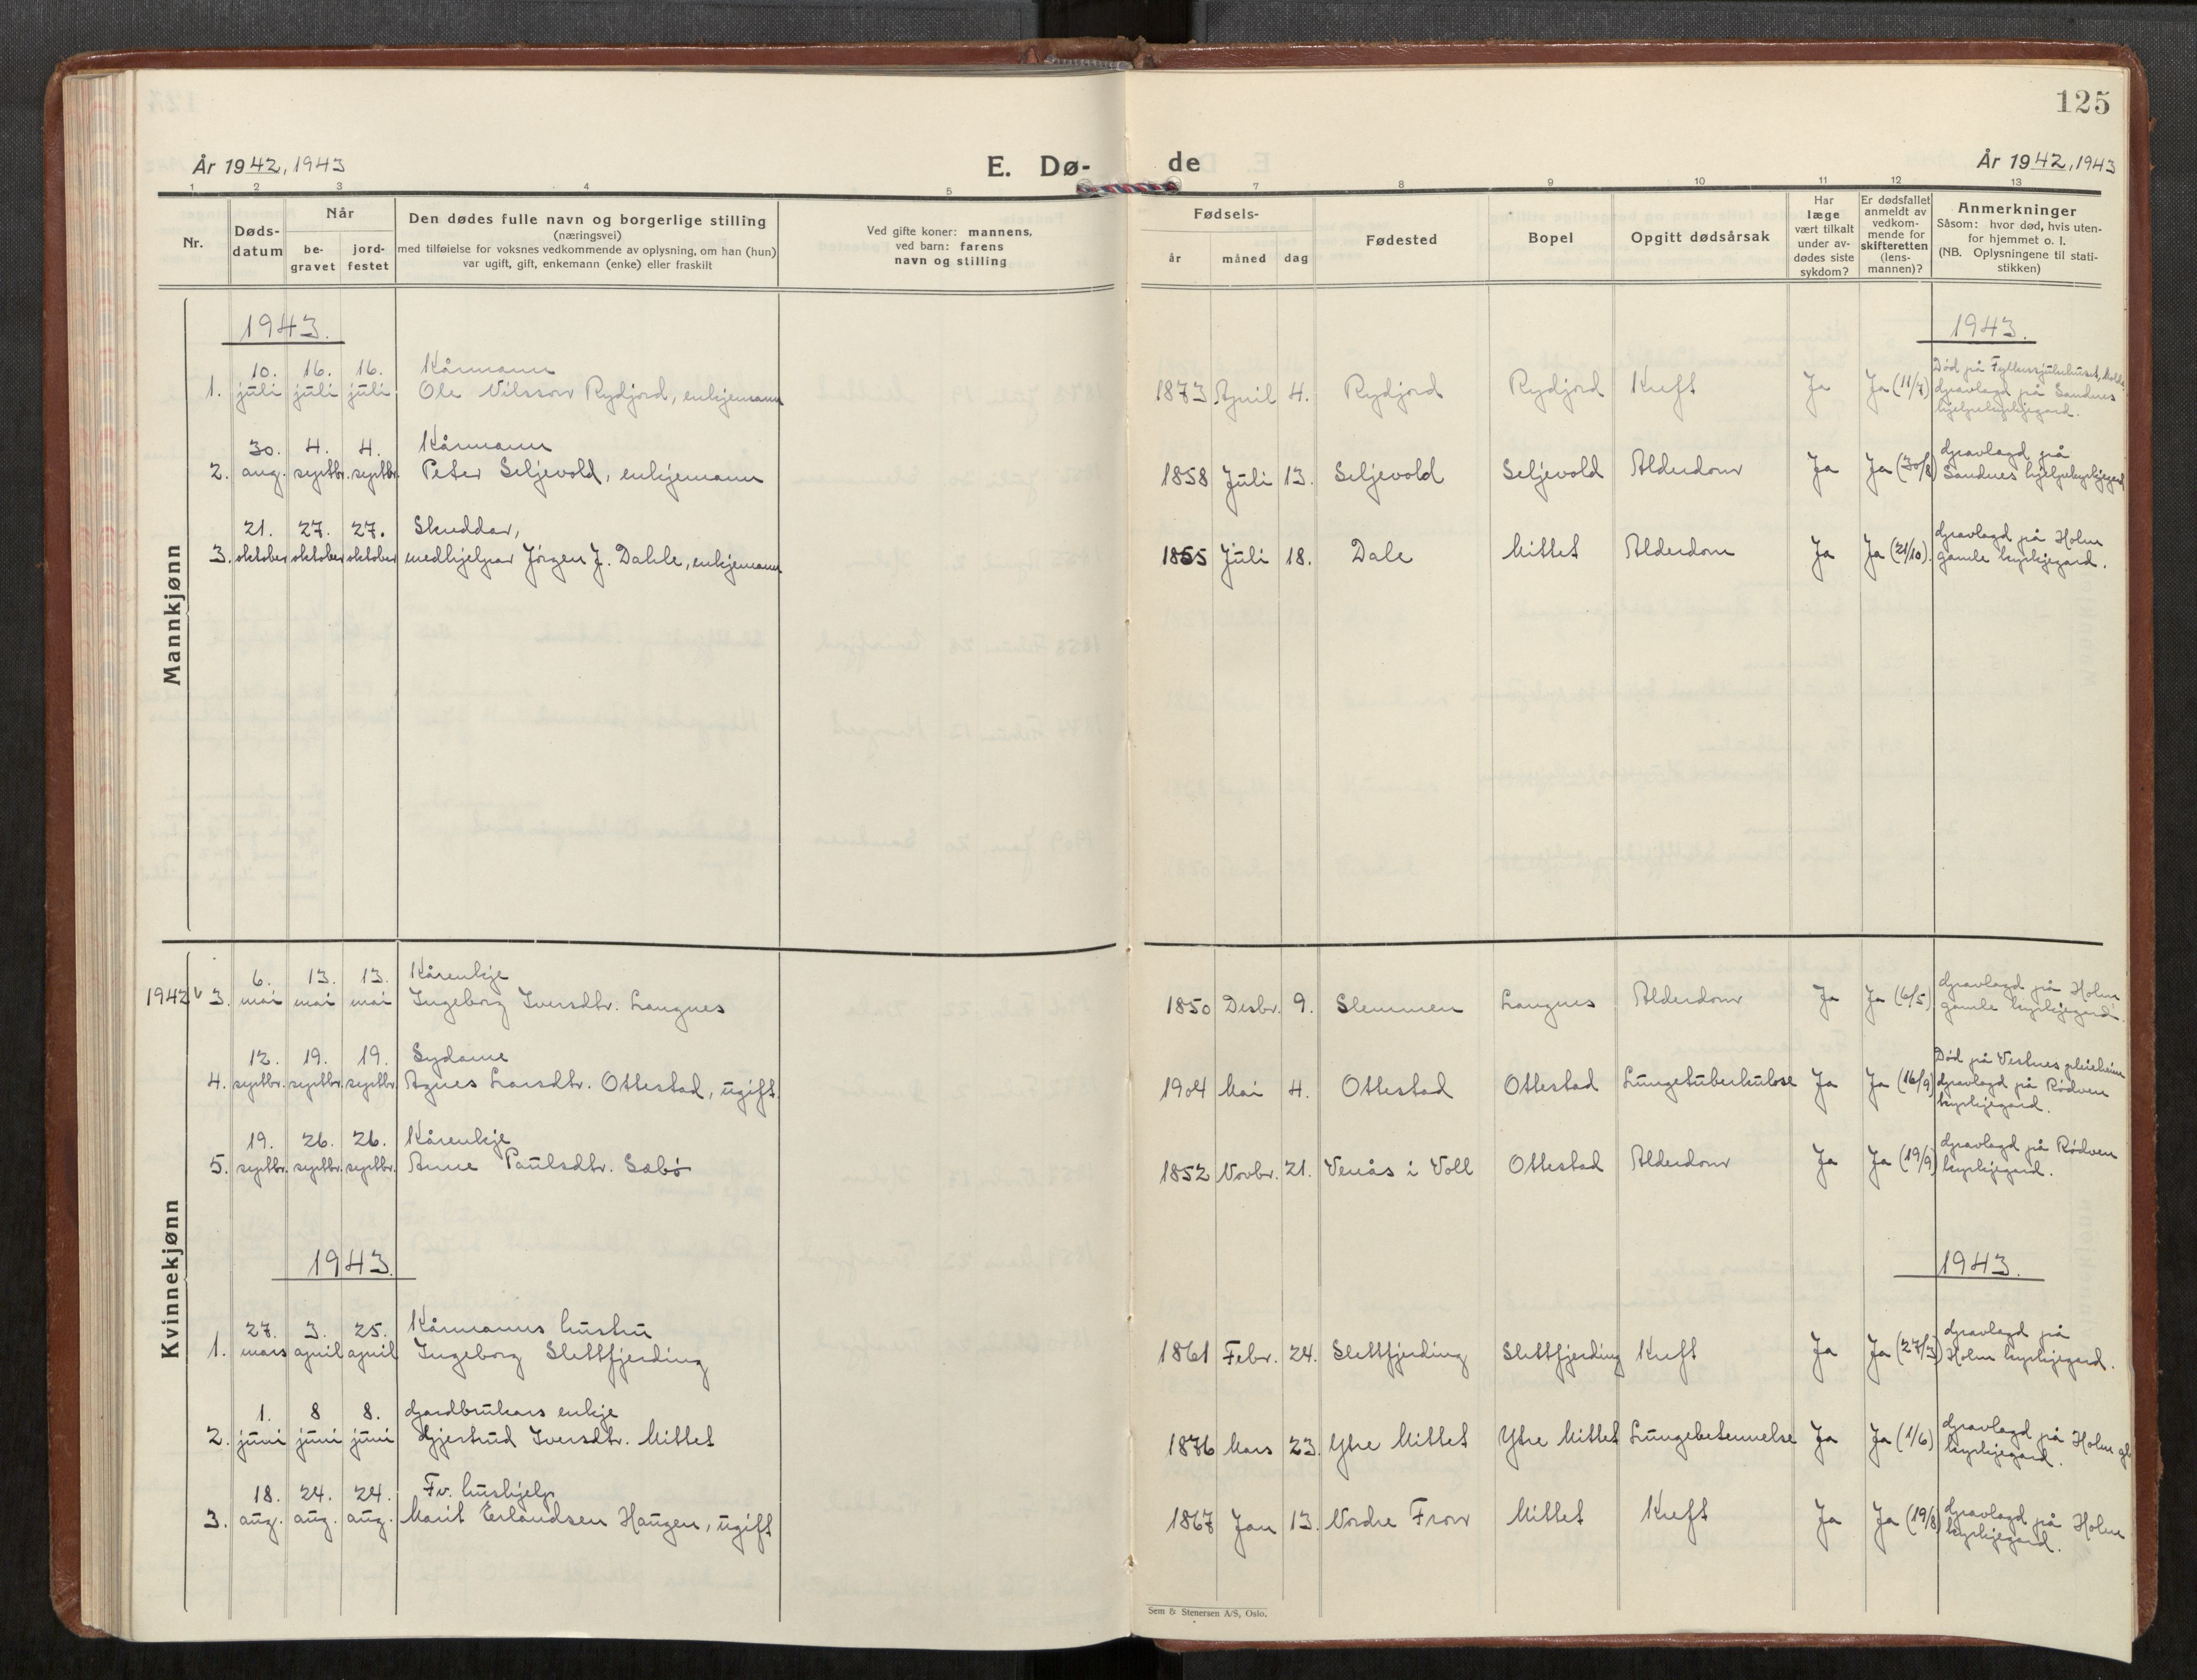 125
År 1942, 1943
E. Dø-
de
År 1942, 1943
1 2 3 4 5 7 8 9 10 11 12 13
Nr.
Døds-
datum
Når
be-
gravet
jord-
festet
Den dødes fulle navn og borgerlige stilling
(næringsvei)
med tilføielse for voksnes vedkommende av oplysning, om han (hun)
var ugift, gift, enkemann (enke) eller fraskilt
Ved gifte koner: mannens,
ved barn: farens
navn og stilling
Fødsels-
år måned dag
Fødested
Bopel
Opgitt dødsårsak
Har
læge
vært tilkalt
under av-
dødes siste
sykdom?
Er dødsfallet
anmeldt av
vedkom-
mende for
skifteretten
(lens-
mannen)?
Anmerkninger
Såsom: hvor død, hvis uten-
for hjemmet o. l.
(NB. Oplysningene til stati-
stikken)
Mannkjønn
1943.
1943.
10. 16. 16. Kårmann
1. juli juli juli Ole Nilsson Rydjord, enkjemann
1873 April 4. Rydjord Rydjord Kreft Ja Ja (11/7)
Død på Fylkessjukehuset, Molde
Gravlagd på Sandnes
hjelpekyrkjegard.
30. 4. 4. Kårmann
2. aug. septbr. septbr. Peter Seljevold, enkjemann
1858 Juli 13. Seljevold Seljevold Alderdom Ja Ja (30/8)
Gravlagd på
Sandnes hjelpekyrkjegard
21. 27. 27. Skreddar,
3. oktober oktober oktober medhjelpar Jørgen J. Dahle, enkjemann
1855 Juli 18. Dale Mittet Alderdom Ja Ja (21/10).
Gravlagd på Holm
gamle kyrkjegard.
Kvinnekjønn
6. 13. 13. Kårenkje
1942 3. mai mai mai Ingeborg Iversdtr. Langnes
1850 Desbr. 9. Slemmen Langnes Alderdom Ja Ja (6/5)
Gravlagd på Holm
gamle kyrkjegard.
12. 19. 19. Sydame
4. septbr. septbr. septbr. Agnes Larsdtr. Ottestad, ugift.
1904 Mai 4. Ottestad Ottestad Lungetuberkulose Ja Ja (16/9)
Død på Vestnes pleieheim
Gravlagd på Rødven
kyrkjegard.
19. 26. 26. Kårenkje
5. septbr. septbr. septbr. Anne Paulsdtr. Sæbø
1852 Novbr. 21. Venås i Voll Ottestad Alderdom Ja Ja (19/9)
Gravlagd på Rødven
kyrkjegard.
1943
1943.
27. 3. 25. Kårmanns hustru
1. mars april april Ingeborg Slettfjerding
1861 Febr. 24. Slettfjerding Slettfjerding Kreft Ja Ja (27/3)
Gravlagd på
Holm kyrkjegard.
1. 8 8. Gardbrukars enkje
2. juni juni juni Gjertrud Iversdtr. Mittet
1876 Mars 23. Ytre Mittet Ytre Mittet Lungebetennelse Ja Ja (1/6)
Gravlagd på Holm gl.
kyrkjegard.
18. 24. 24. Fv. hushjelp
3. aug. aug. aug. Marit Erlandsen Haugen, ugift
1867 Jan 13. Nordre From Mittet Kreft Ja Ja (19/8)
Gravlagd på Holm
kyrkjegard.
Sem & Stenersen A/S, Oslo.